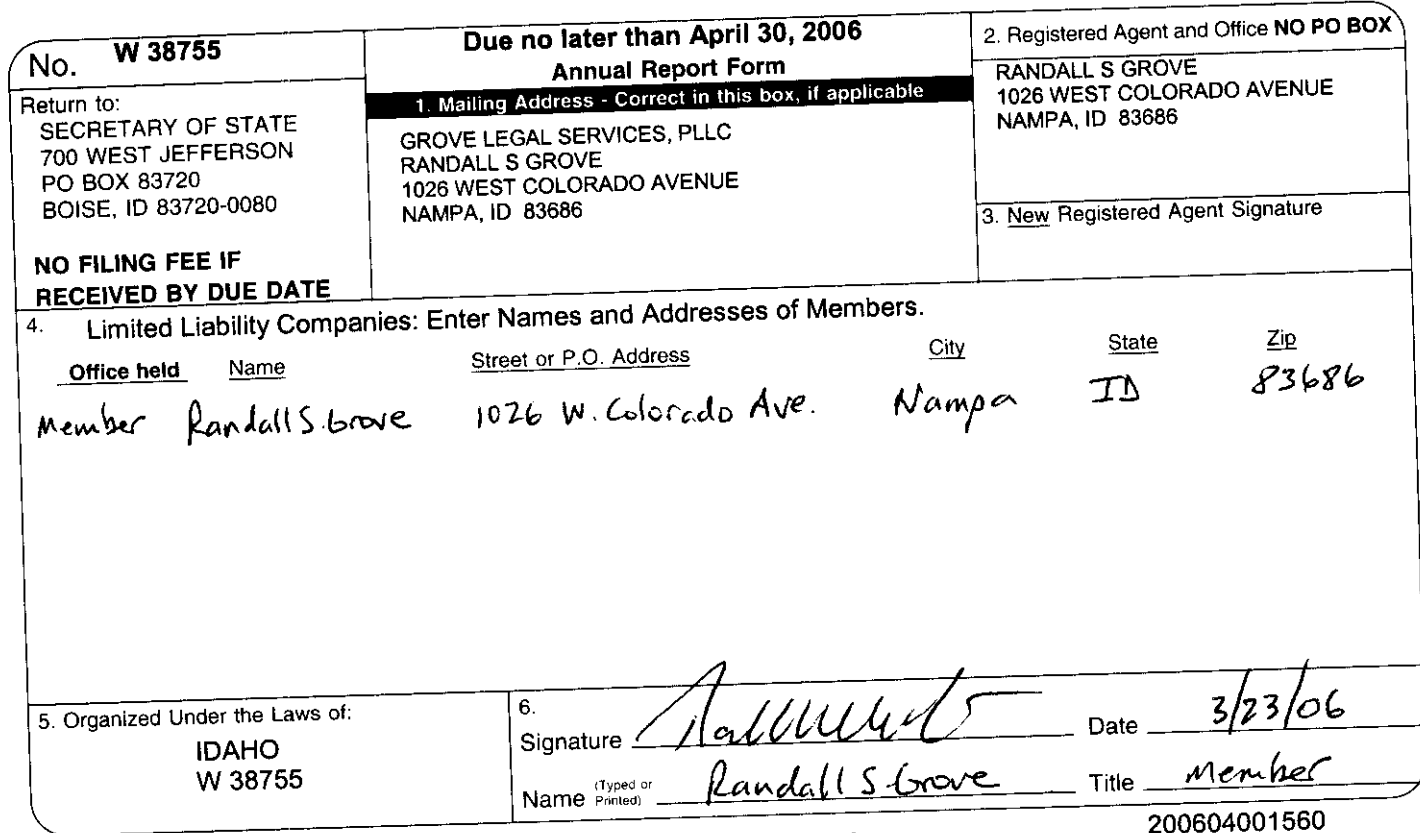 No. W 38755
Return to:
SECRETARY OF STATE
700 WEST JEFFERSON
PO BOX 83720
BOISE, ID 83720-0080
NO FILING FEE IF
RECEIVED BY DUE DATE
Due no later than April 30, 2006
Annual Report Form
1. Mailing Address - Correct in this box, if applicable
GROVE LEGAL SERVICES, PLLC
RANDALL S GROVE
1026 WEST COLORADO AVENUE
NAMPA, ID 83686
2. Registered Agent and Office NO PO BOX
RANDALL S GROVE
1026 WEST COLORADO AVENUE
NAMPA, ID 83686
3. New Registered Agent Signature
4. Limited Liability Companies: Enter Names and Addresses of Members.
Office held Name Street or P.O. Address City State Zip
Member Randall S. Grove 1026 W. Colorado Ave. Nampa ID 83686
5. Organized Under the Laws of:
IDAHO
W 38755
6.
Signature Date 3/23/06
Name (Typed or Printed) Randall S. Grove Title Member
200604001560